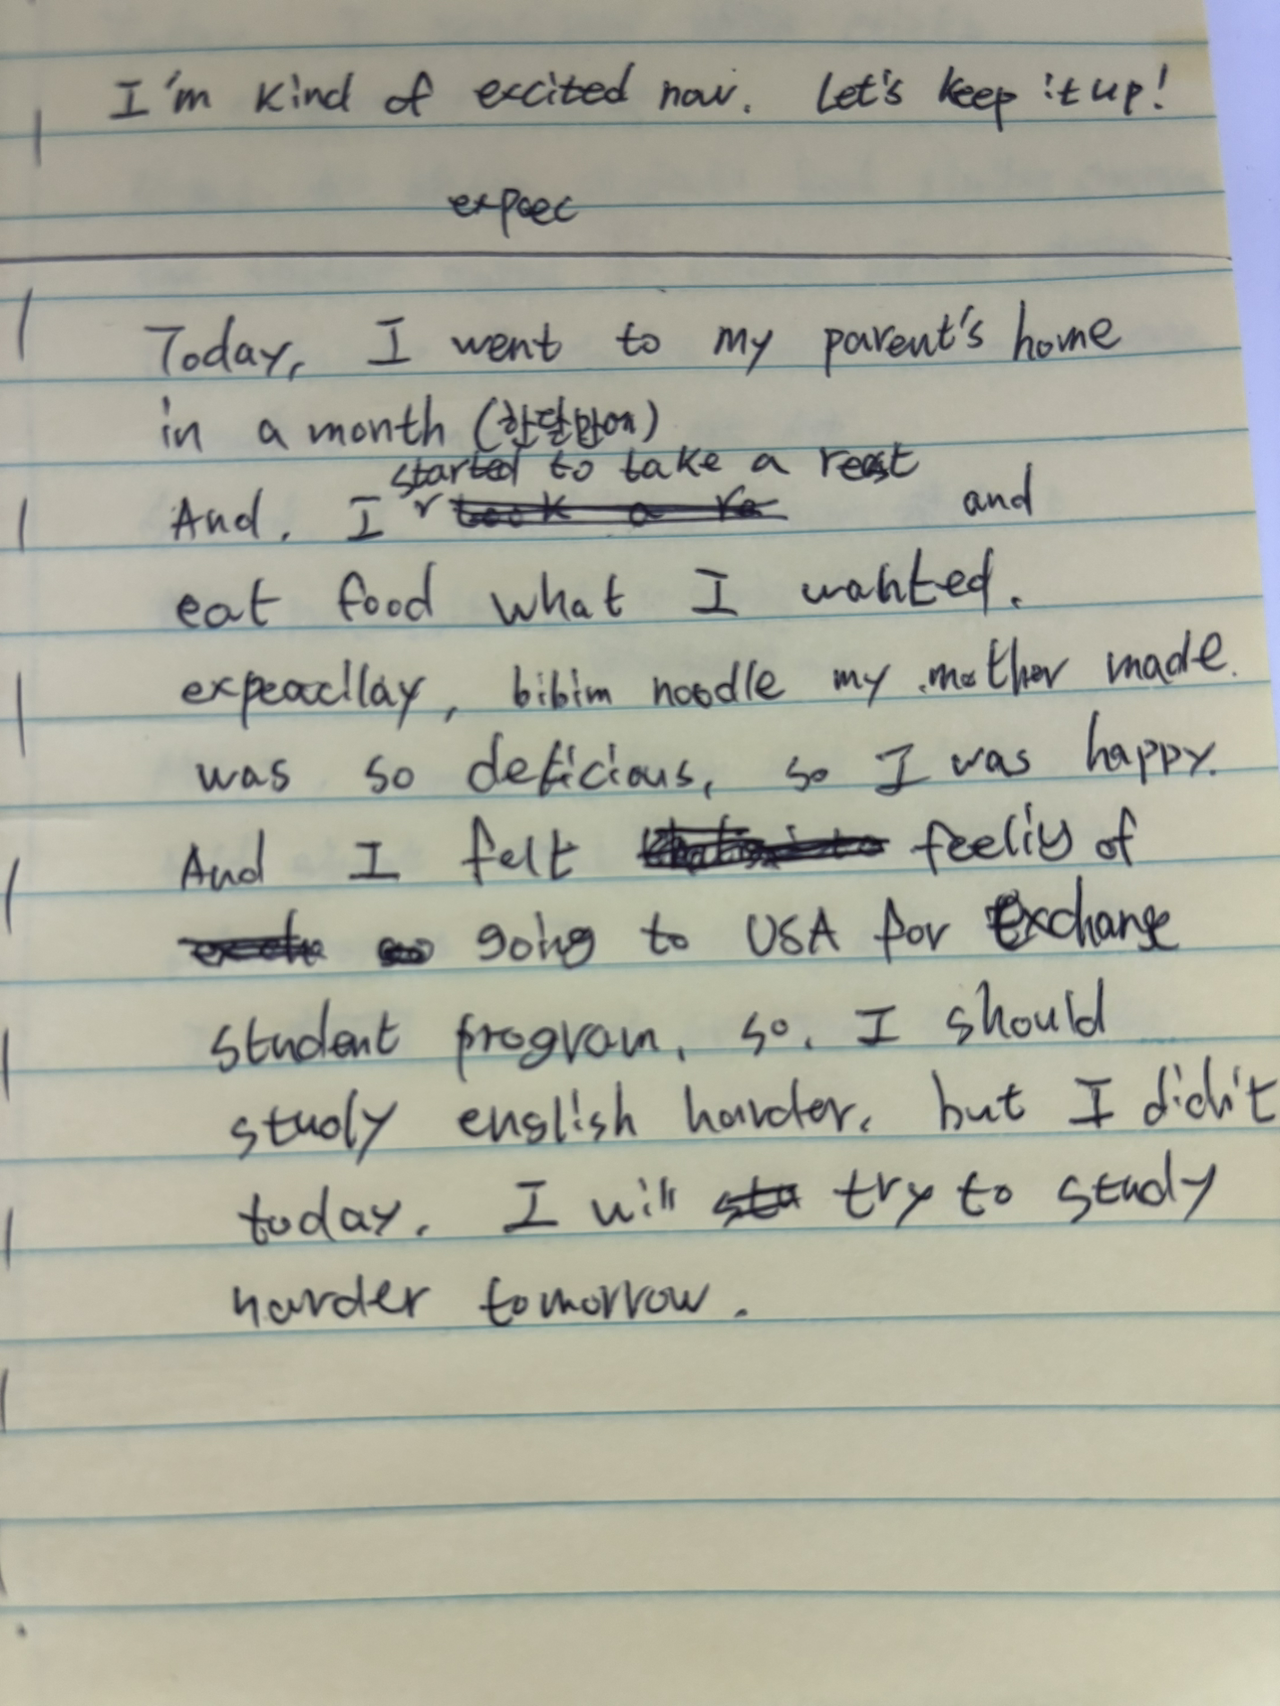 I'm kind of excited now. Let's keep it up!
expec
Today, I went to my parent's home
in a month (한달만에)
started to take a rest
And. I took a re and
eat food what I wanted.
expeacillay, bibim noodle my mother made.
was so delicious, so I was happy.
And I felt feeling of
going to USA for Exchange
student program, so. I should
study english harder, but I didn't
today. I will stu try to study
harder tomorrow.